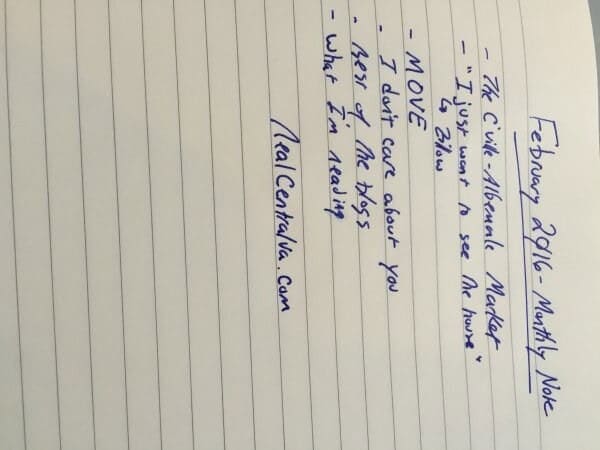 February 2016 - Monthly Note
- The C'ville-Albemarle Market
- "I just want to see the house"
↳ Zillow
- MOVE
. I don't care about you
. Best of the blogs
- What I'm reading
RealCentralVa.com